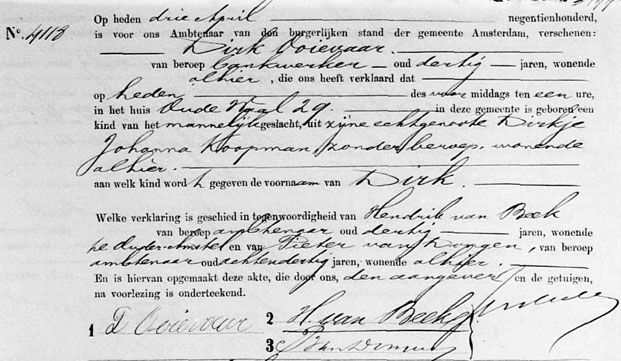 Op heden drie April negentienhonderd,
No. 4118 is voor ons Ambtenaar van den burgerlijken stand der gemeente Amsterdam, verschenen:
Dirk Ooievaar
van beroep bankwerker oud dertig jaren, wonende
alhier, die ons heeft verklaard dat
op heden des voor middags ten een ure,
in het huis Oude Waal 29 in deze gemeente is geboren een
kind van het mannelijk geslacht, uit zijne echtgenoote Dirkje
Johanna Koopman, zonder beroep, wonende
alhier.
aan welk kind wordt gegeven de voornaam van Dirk.
Welke verklaring is geschied in tegenwoordigheid van Hendrik van Beek
van beroep ambtenaar oud dertig jaren, wonende
te Ouder-Amstel en van Pieter van Dongen, van beroep
ambtenaar oud achtendertig jaren, wonende alhier.
En is hiervan opgemaakt deze akte, die door ons, den aangever en de getuigen,
na voorlezing is onderteekend.
1 D Ooievaar 2 H. van Beek
3 P van Dongen